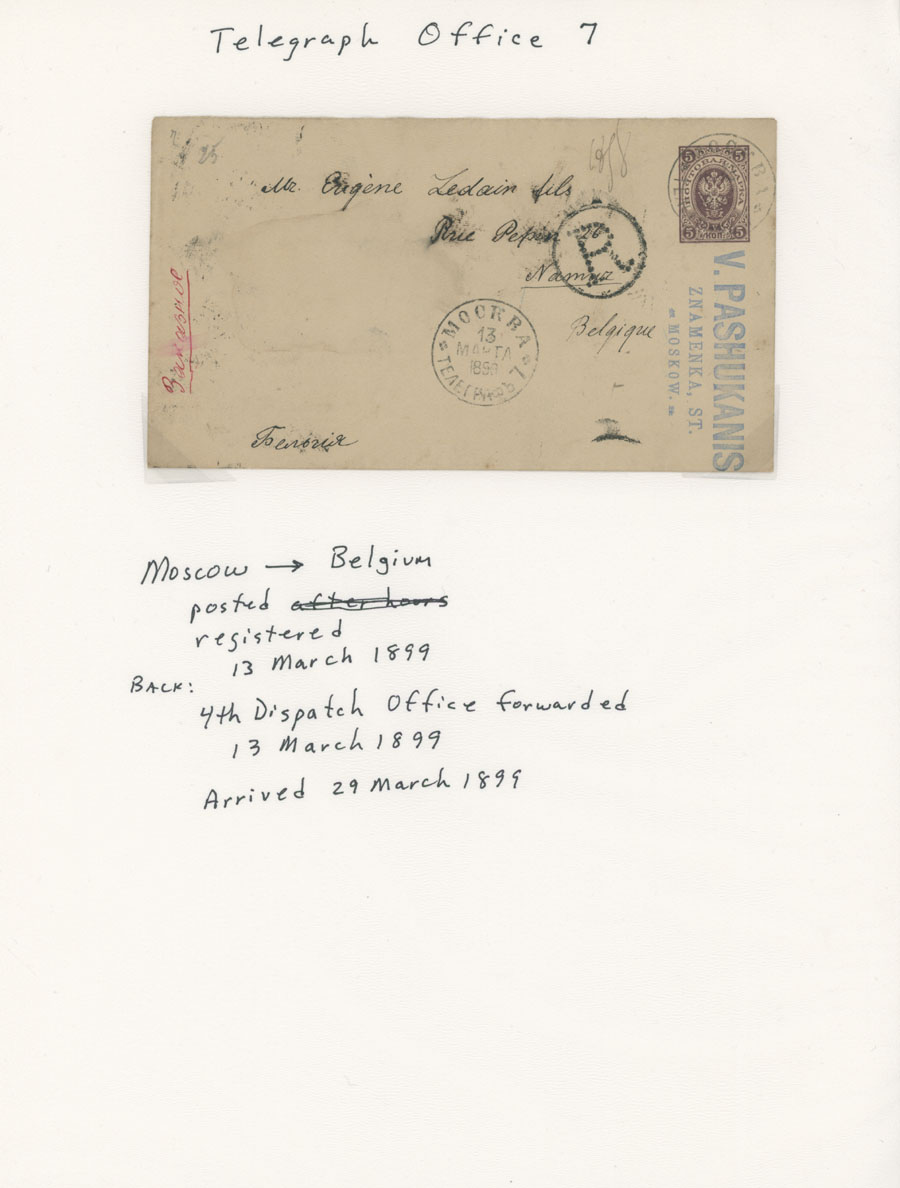 Telegraph Office 7
Mr. Eugène Ledain fils
Rue Pepin 26
Namur
Belgique
Заказное
Бельгія
R
МОСКВА
13
МАРТА
1899
ТЕЛЕГРАФЪ 7
5 5
ПОЧТОВАЯ МАРКА
5 КОП. 5
V. PASHUKANIS
ZNAMENKA, ST.
MOSKOW.
Moscow → Belgium
posted after hours
registered
13 March 1899
BACK:
4th Dispatch Office forwarded
13 March 1899
Arrived 29 March 1899